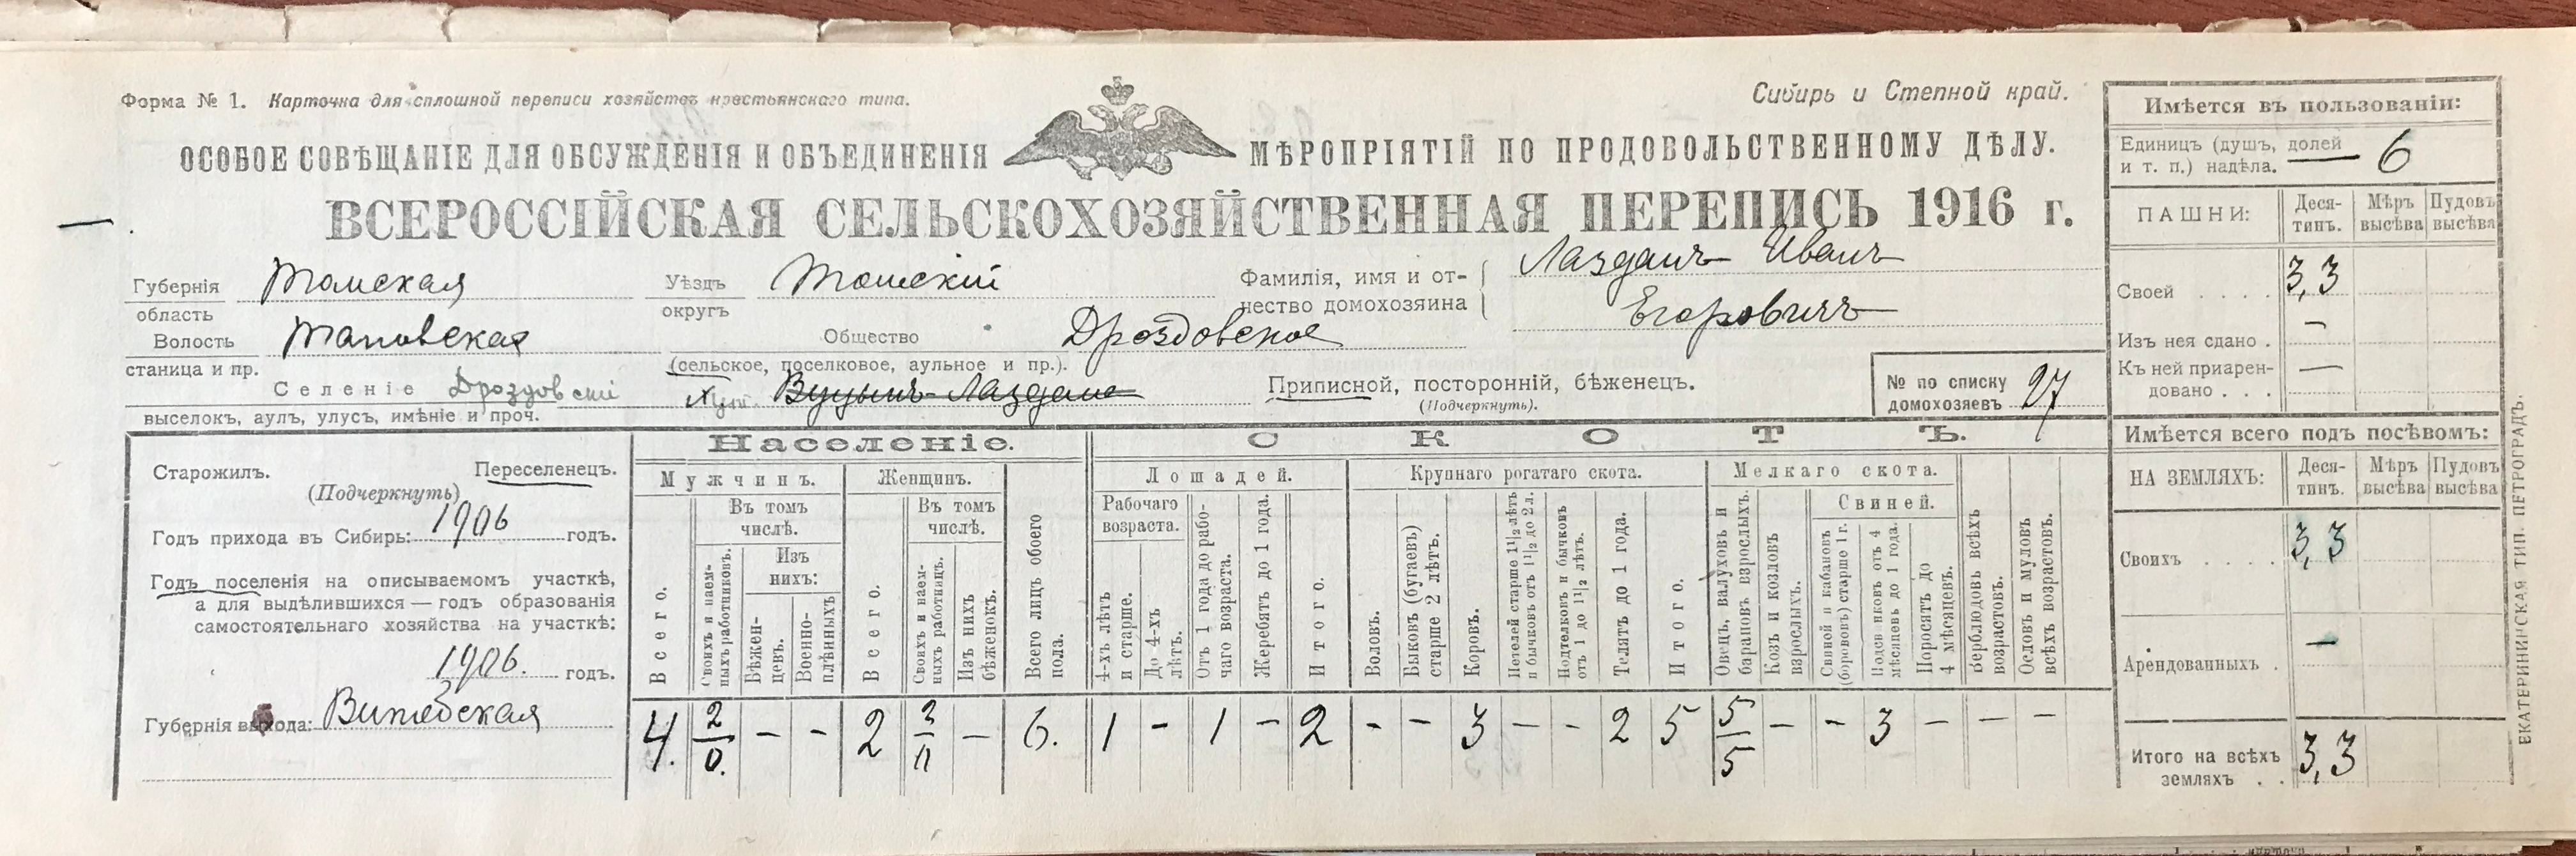 Форма № 1. Карточка для сплошной переписи хозяйствъ крестьянскаго типа.
Сибирь и Степной край.
ОСОБОЕ СОВѢЩАНІЕ ДЛЯ ОБСУЖДЕНІЯ И ОБЪЕДИНЕНІЯ МѢРОПРІЯТІЙ ПО ПРОДОВОЛЬСТВЕННОМУ ДѢЛУ.
ВСЕРОССІЙСКАЯ СЕЛЬСКОХОЗЯЙСТВЕННАЯ ПЕРЕПИСЬ 1916 г.
Губернія область Томская Уѣздъ округъ Томскій
Фамилія, имя и отчество домохозяина Лазданъ Иванъ
Егоровичъ
Волость станица и пр. Общество Дроздовское
(сельское, поселковое, аульное и пр.).
Селеніе Дроздовскій
выселокъ, аулъ, улусъ, имѣніе и проч.
Приписной, посторонній, бѣженецъ.
(Подчеркнуть).
№ по списку домохозяевъ 27
Старожилъ. Переселенецъ.
(Подчеркнуть)
Годъ прихода въ Сибирь: 1906 годъ.
Годъ поселенія на описываемомъ участкѣ,
а для выдѣлившихся — годъ образованія
самостоятельнаго хозяйства на участкѣ:
1906. годъ.
Губернія выхода: Витебская
Населеніе.
Мужчинъ.
Всего.
Въ томъ числѣ.
Своихъ и наемныхъ работниковъ.
Изъ нихъ:
Бѣженцевъ.
Военноплѣнныхъ
Женщинъ.
Всего.
Въ томъ числѣ.
Своихъ и наемныхъ работницъ.
Изъ нихъ бѣженокъ.
Всего лицъ обоего пола.
4. 2/0. - - 2 2/0 - 6.
СКОТЪ.
Лошадей.
Рабочаго возраста.
4-хъ лѣтъ и старше.
До 4-хъ лѣтъ.
Отъ 1 года до рабочаго возраста.
Жеребятъ до 1 года.
Итого.
Крупнаго рогатаго скота.
Воловъ.
Быковъ (бугаевъ) старше 2 лѣтъ.
Коровъ.
Нетелей старше 1 1/2 лѣтъ и бычковъ отъ 1 1/2 до 2 л.
Подтелковъ и бычковъ отъ 1 до 1 1/2 лѣтъ.
Телятъ до 1 года.
Итого.
Мелкаго скота.
Овецъ, валуховъ и барановъ взрослыхъ.
Козъ и козловъ взрослыхъ.
Свиней.
Свиней и кабановъ (борововъ) старше 1 г.
Подсвинковъ отъ 4 мѣсяцевъ до 1 года.
Поросятъ до 4 мѣсяцевъ.
Верблюдовъ всѣхъ возрастовъ.
Ословъ и муловъ всѣхъ возрастовъ.
1 - 1 - 2 - - 3 - - 2 5 5/5 - - 3 - - -
Имѣется въ пользованіи:
Единицъ (душъ, долей и т. п.) надѣла. 6
ПАШНИ: Десятинъ. Мѣръ высѣва Пудовъ высѣва
Своей . . . . 3,3
Изъ нея сдано . —
Къ ней приарендовано . . . —
Имѣется всего подъ посѣвомъ:
НА ЗЕМЛЯХЪ: Десятинъ. Мѣръ высѣва Пудовъ высѣва
Своихъ . . . . 3,3
Арендованныхъ . —
Итого на всѣхъ земляхъ . . 3,3
ЕКАТЕРИНИНСКАЯ ТИП. ПЕТРОГРАДЪ.